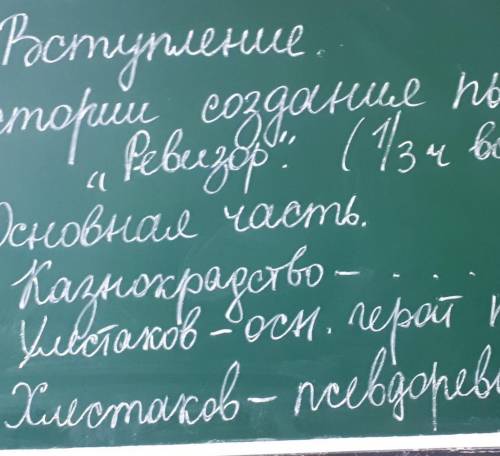 Вступление.
стории создания пь
"Ревизор". (1/3 ч вс
Основная часть.
Казнокрадство - . . . .
Хлестаков - осн. герой п
Хлестаков - псевдореви